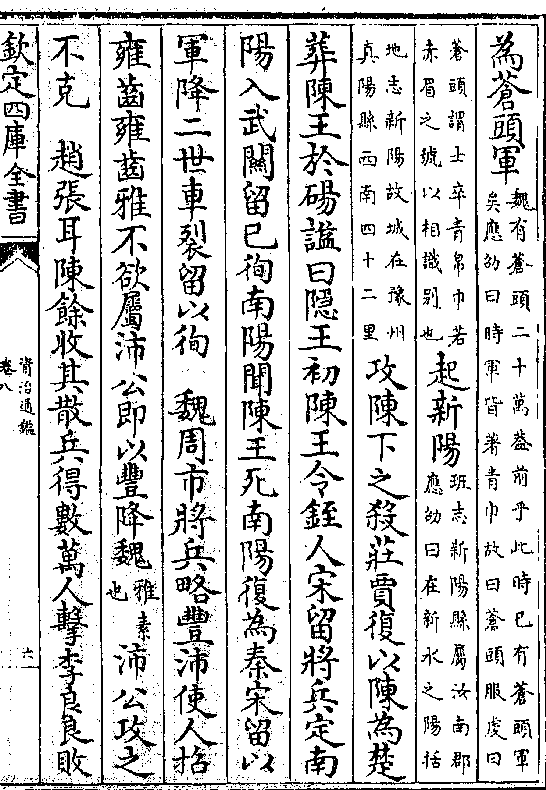 為蒼頭軍魏有蒼頭二十萬蓋前乎此時已有蒼頭軍
矣應劭曰時軍皆著青巾故曰蒼頭服虔曰
蒼頭謂士卒青帛巾若
赤眉之號以相識别也起新陽班志新陽縣屬汝南郡
應劭曰在新水之陽括
地志新陽故城在豫州
真陽縣西南四十二里攻陳下之殺莊賈復以陳為楚
葬陳王於碭諡曰隱王初陳王令銍人宋留將兵定南
陽入武關留已徇南陽聞陳王死南陽復為秦宋留以
軍降二世車裂留以徇 魏周市將兵略豐沛使人招
雍齒雍齒雅不欲屬沛公即以豐降魏雅素
也沛公攻之
不克 趙張耳陳餘收其散兵得數萬人擊李良良敗
欽定四庫全書
資治通鑑
卷八
六